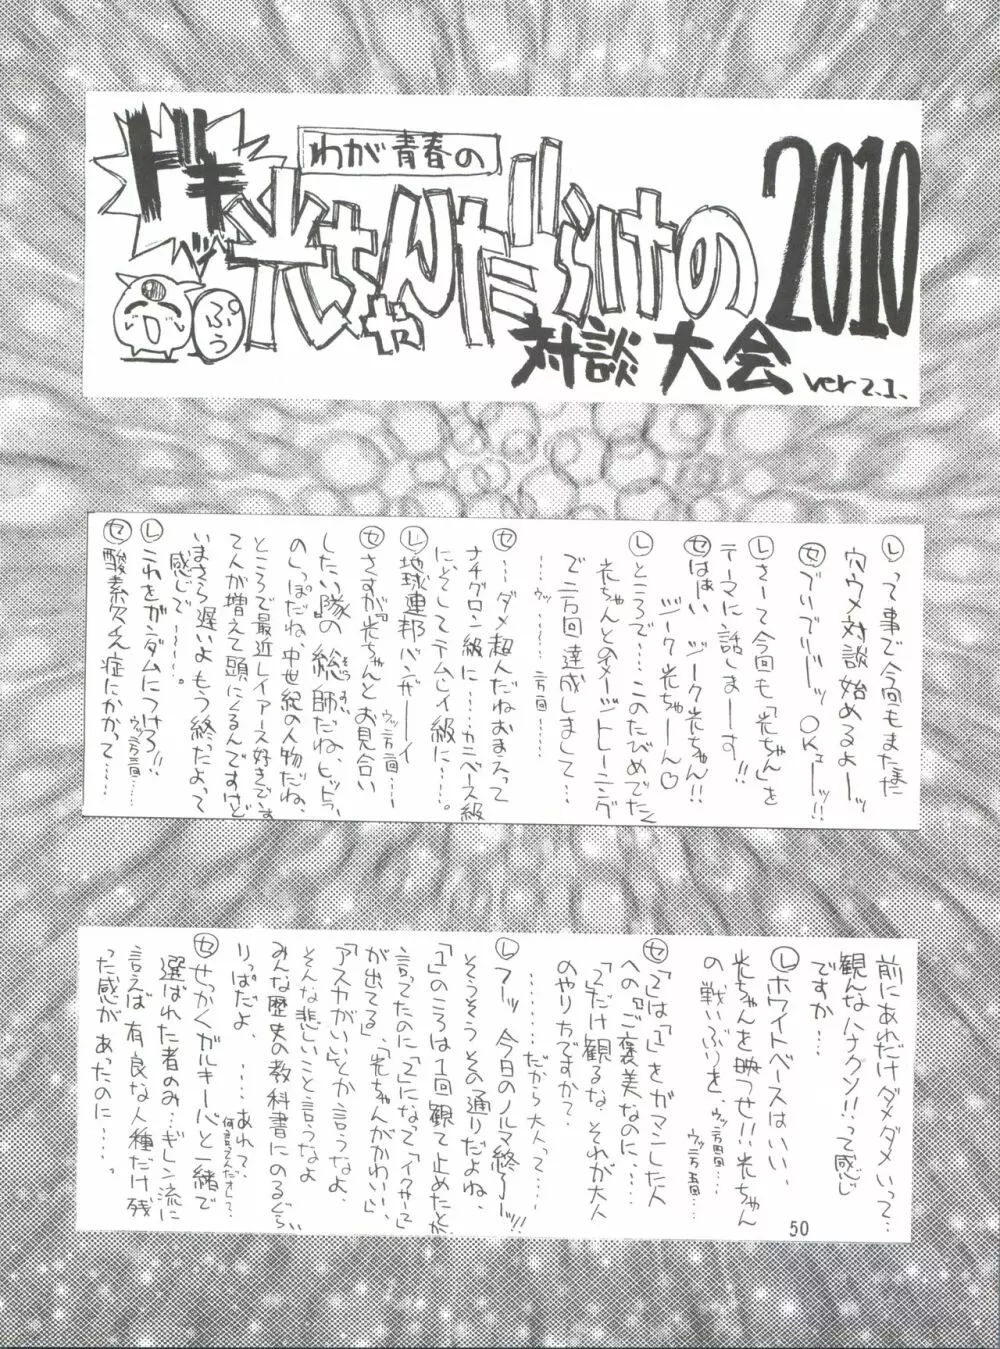 ドキッ
わが青春の
光ちゃんだらけの
2010
対談大会 ver 2.1.
ぷぅ
レ って事で今回もまたまた
穴ウメ対談始めるよーッ
セ でいでいでーッッOKェーッ!!
レ さーて今回も「光ちゃん」を
テーマに話しまーーす!!
セ はぁい ジーク光ちゃん!!
ジーク光ちゃーん♡
レ ところで……このたびめでたく
光ちゃんとのイメージトレーニング
で二万回達成しまして
……ウッ……、二万回……
セ ……ダメ超人だねおまえって
ナチグロン級に……カニベース級
に、そしてテムレイ級に……。
レ 地球連邦バンザーーイ
ウッ二万一回……
セ さすが『光ちゃんとお見合い
したい隊』の総師だね、ヒットラー
のしっぽだね、中世紀の人物だね、
ところで最近レイアース好きです
て人が増えて頭にくるんですけど
いまさら遅いよもう終ったよって
感じで……。
レ これをガンダムにつけろ!!
ウッ二万二回……
セ 酸素欠乏症にかかって……
前にあれだけダメダメいって…
観んなハナクソ!!って感じ
ですか…
レ ホワイトベースはいい、
光ちゃんを映つせ!!!光ちゃん
の、戦いぶりを、
セ 「2」は「1」をガマンした人
への『ご褒美なのに……
「2」だけ観るな?それが大人
のやり方ですか?
………だから大人って……
レ フーッ 今日のノルマ終了ーッ!!
そうそうその通りだよね、
「1」のころは1回観て止めたとか
言ってたのに「2」になって「イクサーて
が出てる」、「光ちゃんがかわいい」、
「アスカがいい」とか言うなよ、
そんな悲しいこと言うなよ
みんな歴史の教科書にのるぐら
りっぱだよ、……あれ?、
何言ってんだオレって、
セ せっかくガルキーバと一緒で
選ばれた者のみ…ギレン流に
言えば有良な人種だけ残
った感が あったのに……、
50